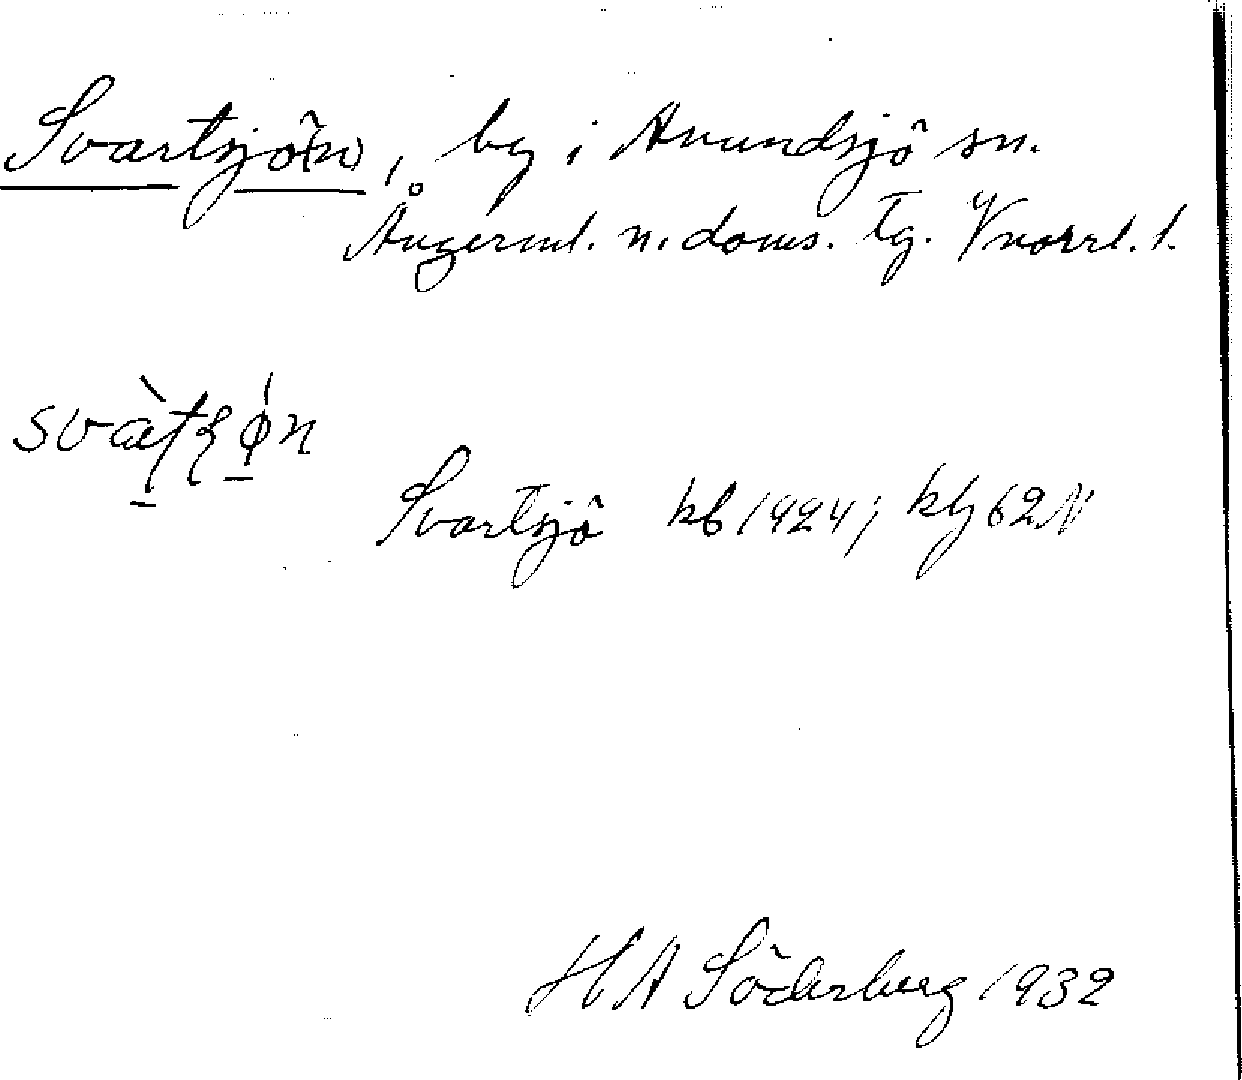 Svartsjö(n), by i Anundsjö sn.
Ångerml. n. doms. tg. Vnorrl. l.
Svartsjö kb 1924; kbl 62 N
H A Söderberg 1932